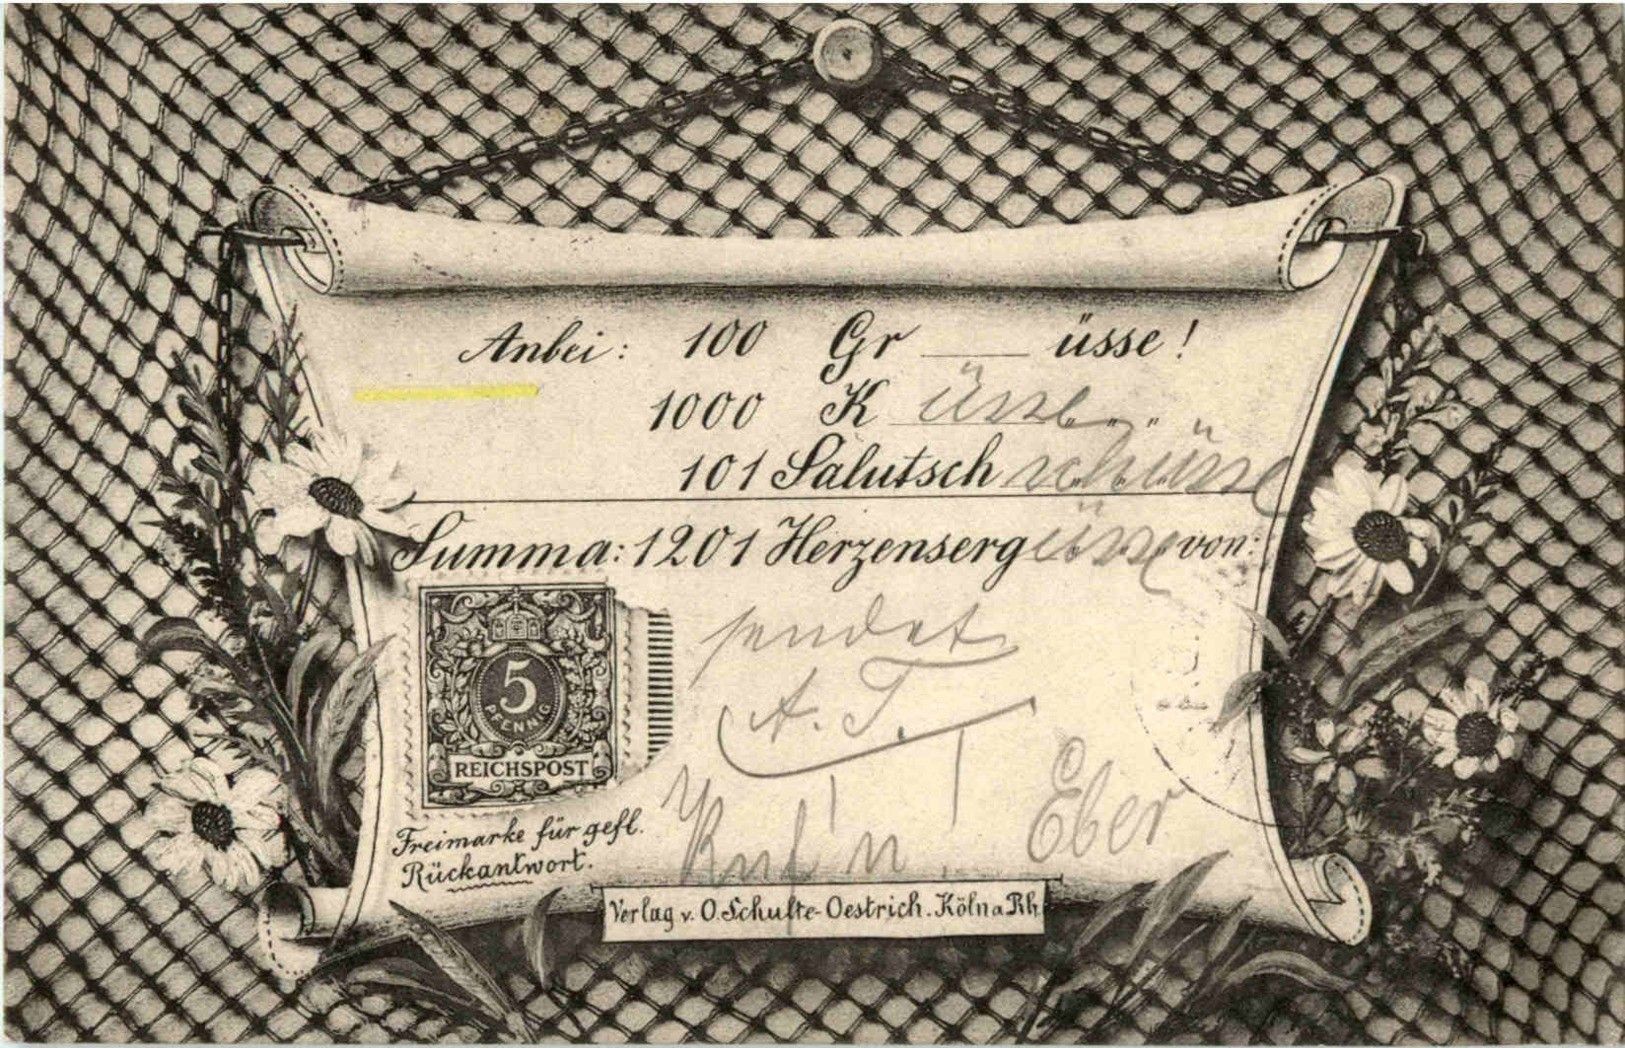 Anbei: 100 Gr ___ üsse!
1000 K üsse " " "
101 Salutsch
Summa: 1201 Herzenserg üsse von:
sendet
A. T.
5
PFENNIG
REICHSPOST
Eber
Freimarke für gefl.
Rückantwort.
Verlag v. O. Schulte-Oestrich. Köln a Rh.